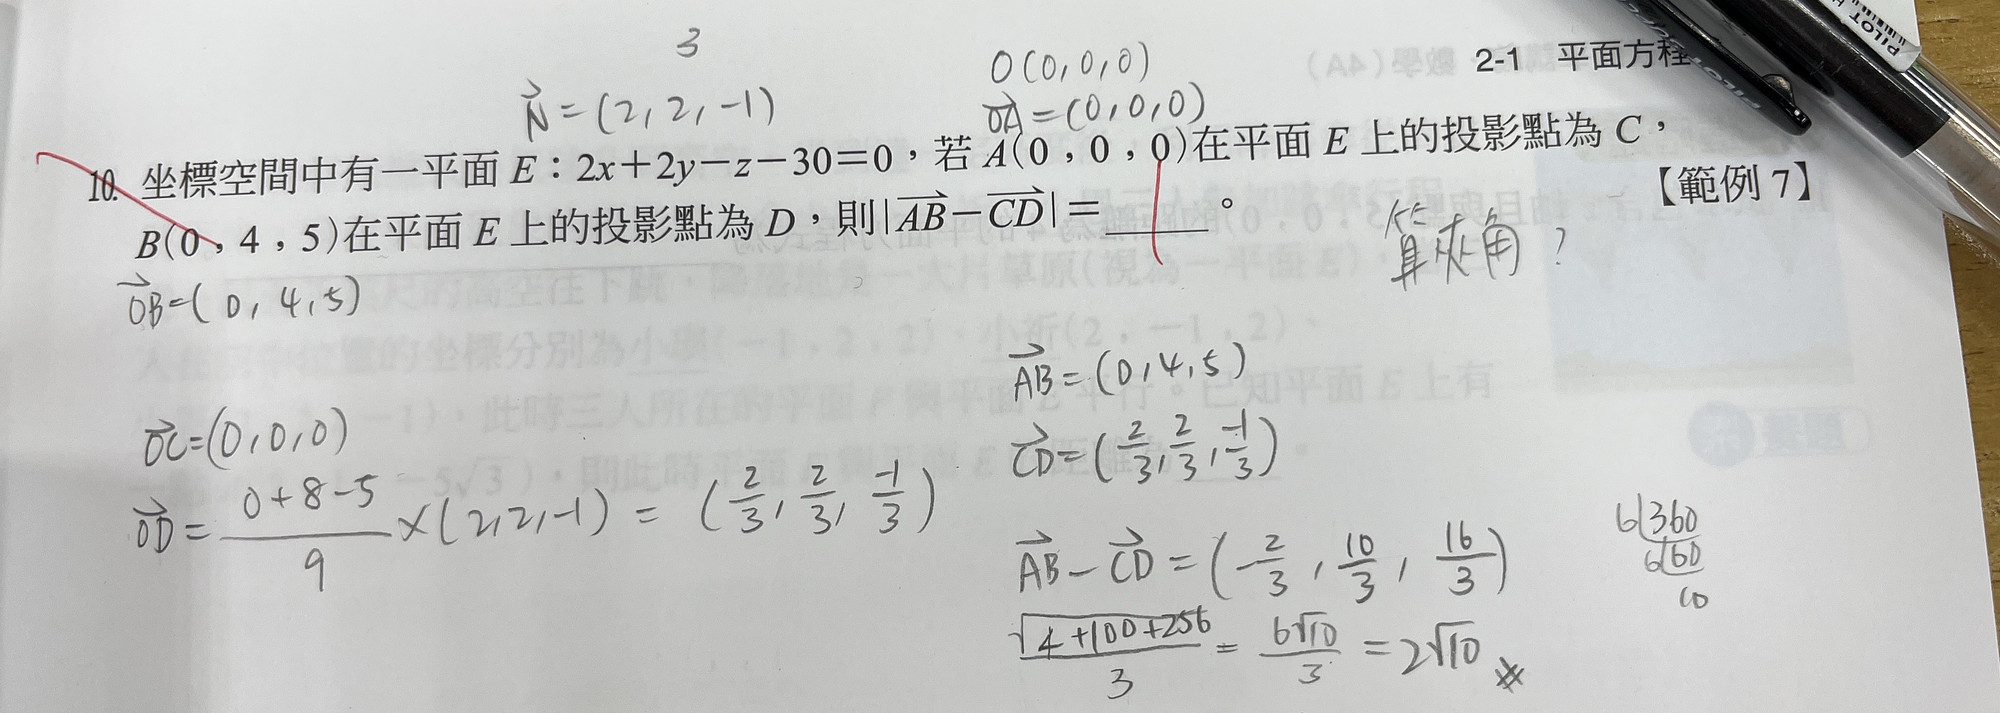 3
O(0,0,0)
2-1 平面方程
N⃗=(2,2,-1)
OA⃗=(0,0,0)
10. 坐標空間中有一平面 E：2x+2y−z−30=0，若 A(0，0，0)在平面 E 上的投影點為 C，
B(0，4，5)在平面 E 上的投影點為 D，則|AB⃗−CD⃗|=______。
【範例 7】
算夾角？
OB⃗=(0,4,5)
AB⃗=(0,4,5)
OC⃗=(0,0,0)
CD⃗=(2/3,2/3,-1/3)
OD⃗=(0+8-5)/9×(2,2,-1)=(2/3,2/3,-1/3)
AB⃗-CD⃗=(-2/3,10/3,16/3)
6)360
6)60
10
√(4+100+256)/3=6√10/3=2√10
PILOT